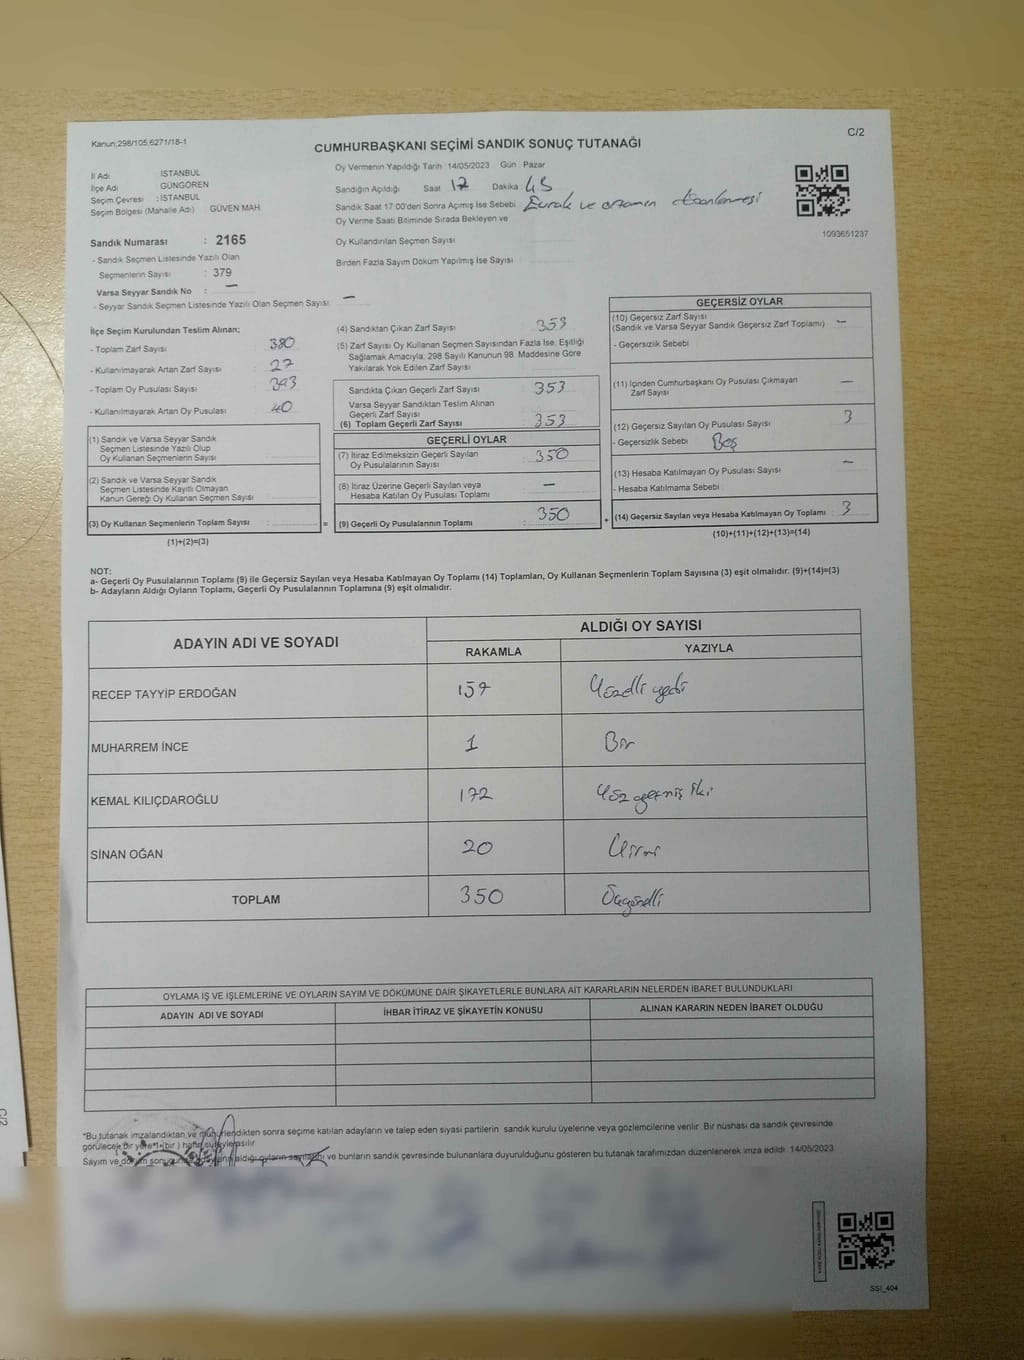 Kanun;298/105;6271/18-1
C/2
CUMHURBAŞKANI SEÇİMİ SANDIK SONUÇ TUTANAĞI
İl Adı İSTANBUL
İlçe Adı GÜNGÖREN
Seçim Çevresi : İSTANBUL
Seçim Bölgesi (Mahalle Adı) GÜVEN MAH.
Oy Vermenin Yapıldığı Tarih : 14/05/2023 Gün : Pazar
Sandığın Açıldığı Saat 17 Dakika 45
Sandık Saat 17:00'den Sonra Açımış İse Sebebi Evrak ve ortamın
Oy Verme Saati Bitiminde Sırada Bekleyen ve
Oy Kullandırılan Seçmen Sayısı
Birden Fazla Sayım Döküm Yapılmış İse Sayısı :
1093651237
Sandık Numarası : 2165
- Sandık Seçmen Listesinde Yazılı Olan
Seçmenlerin Sayısı : 379
Varsa Seyyar Sandık No : —
- Seyyar Sandık Seçmen Listesinde Yazılı Olan Seçmen Sayısı: —
İlçe Seçim Kurulundan Teslim Alınan;
- Toplam Zarf Sayısı : 380
- Kullanılmayarak Artan Zarf Sayısı : 27
- Toplam Oy Pusulası Sayısı : 393
- Kullanılmayarak Artan Oy Pusulası : 40
(1) Sandık ve Varsa Seyyar Sandık
Seçmen Listesinde Yazılı Olup
Oy Kullanan Seçmenlerin Sayısı :
(2) Sandık ve Varsa Seyyar Sandık
Seçmen Listesinde Kayıtlı Olmayan
Kanun Gereği Oy Kullanan Seçmen Sayısı :
(3) Oy Kullanan Seçmenlerin Toplam Sayısı : =
(1)+(2)=(3)
(4) Sandıktan Çıkan Zarf Sayısı : 353
(5) Zarf Sayısı Oy Kullanan Seçmen Sayısından Fazla İse, Eşitliği
Sağlamak Amacıyla; 298 Sayılı Kanunun 98. Maddesine Göre
Yakılarak Yok Edilen Zarf Sayısı
Sandıkta Çıkan Geçerli Zarf Sayısı : 353
Varsa Seyyar Sandıktan Teslim Alınan
Geçerli Zarf Sayısı
(6) Toplam Geçerli Zarf Sayısı : 353
GEÇERLİ OYLAR
(7) İtiraz Edilmeksizin Geçerli Sayılan
Oy Pusulalarının Sayısı : 350
(8) İtiraz Üzerine Geçerli Sayılan veya
Hesaba Katılan Oy Pusulası Toplamı : —
(9) Geçerli Oy Pusulalarının Toplamı : 350 +
GEÇERSİZ OYLAR
(10) Geçersiz Zarf Sayısı
(Sandık ve Varsa Seyyar Sandık Geçersiz Zarf Toplamı) : —
- Geçersizlik Sebebi
(11) İçinden Cumhurbaşkanı Oy Pusulası Çıkmayan
Zarf Sayısı : —
(12) Geçersiz Sayılan Oy Pusulası Sayısı : 3
- Geçersizlik Sebebi : Boş
(13) Hesaba Katılmayan Oy Pusulası Sayısı : —
- Hesaba Katılmama Sebebi :
(14) Geçersiz Sayılan veya Hesaba Katılmayan Oy Toplamı : 3
(10)+(11)+(12)+(13)=(14)
NOT:
a- Geçerli Oy Pusulalarının Toplamı (9) ile Geçersiz Sayılan veya Hesaba Katılmayan Oy Toplamı (14) Toplamları, Oy Kullanan Seçmenlerin Toplam Sayısına (3) eşit olmalıdır. (9)+(14)=(3)
b- Adayların Aldığı Oyların Toplamı, Geçerli Oy Pusulalarının Toplamına (9) eşit olmalıdır.
ADAYIN ADI VE SOYADI
ALDIĞI OY SAYISI
RAKAMLA YAZIYLA
RECEP TAYYİP ERDOĞAN 157 Yüzelli yedi
MUHARREM İNCE 1 Bir
KEMAL KILIÇDAROĞLU 172 Yüz yetmiş iki
SİNAN OĞAN 20 Yirmi
TOPLAM 350 Üçyüzelli
OYLAMA İŞ VE İŞLEMLERİNE VE OYLARIN SAYIM VE DÖKÜMÜNE DAİR ŞİKAYETLERLE BUNLARA AİT KARARLARIN NELERDEN İBARET BULUNDUKLARI
ADAYIN ADI VE SOYADI İHBAR İTİRAZ VE ŞİKAYETİN KONUSU ALINAN KARARIN NEDEN İBARET OLDUĞU
*Bu tutanak imzalandıktan ve mühürlendikten sonra seçime katılan adayların ve talep eden siyasi partilerin sandık kurulu üyelerine veya gözlemcilerine verilir. Bir nüshası da sandık çevresinde
görülecek bir yere 1 (bir) hafta süreyle asılır.
Sayım ve döküm sonucunda aldığı oyların sayılarını ve bunların sandık çevresinde bulunanlara duyurulduğunu gösteren bu tutanak tarafımızdan düzenlenerek imza edildi. 14/05/2023
SSI_404
C/2